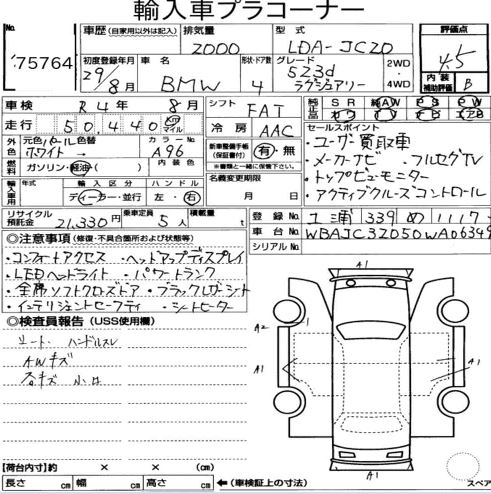 輸入車プラコーナー
No.
75764
車歴 (自家用以外は記入)
排気量 2000
型式 LDA-JC20
評価点 4.5
初度登録年月 29年 8月
車名 BMW
形状・ドア数 4
グレード 523d ラグジュアリー
2WD ・ 4WD
内装補助評価 B
車検 R4年 8月
シフト FAT
純正品 SR AW PS PW
走行 50,440 Km マイル
冷房 AAC
外色 元色 パール 色替 ホワイト→
カラーNo. A96
新車整備手帳(保証書付) 有・無
※書類と一緒に保管して下さい。
セールスポイント
・ユーザー買取車
・メーカーナビ ・フルセグTV
・トップビューモニター
・アクティブクルーズコントロール
燃料 ガソリン・軽油( )
内装色
名義変更期限 月 日
輸入車用 年式 輸入区分 ディーラー・並行
ハンドル 左・右
リサイクル預託金 21,330円
乗車定員 5人
積載量 t
登録No. 339 め 1117
車台No. WBAJC32050WA06349
シリアルNo.
◎注意事項 (修復・不具合箇所および状態等)
・コンフォートアクセス ・ヘッドアップディスプレイ
・LEDヘッドライト ・パワートランク
・全席ソフトクローズドア ・ブラックレザーシート
・インテリジェントセーフティ ・シートヒーター
◎検査員報告 (USS使用欄)
シート、ハンドルスレ
AWキズ
各キズ 小凹
A1
A2
A1
A1
A1
A1
【荷台内寸】約 × × (cm)
長さ cm 幅 cm 高さ cm
←(車検証上の寸法)
スペア